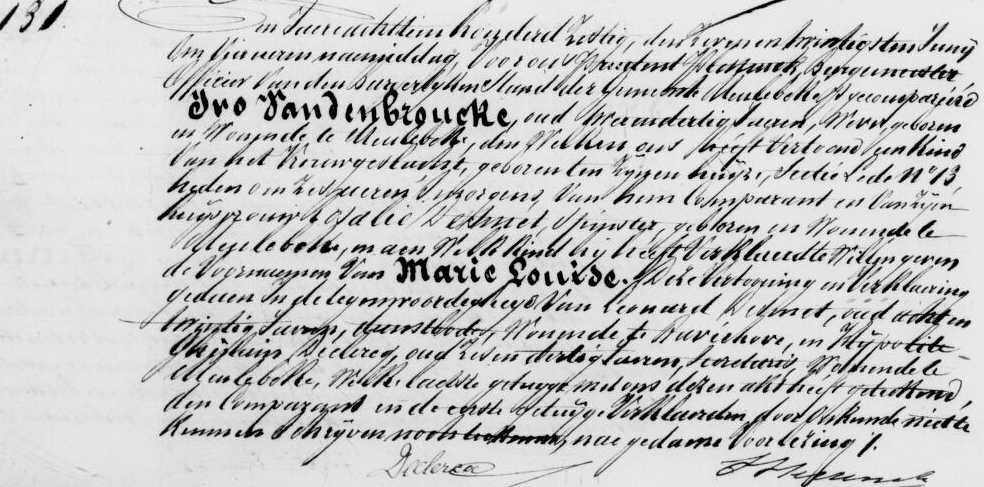 131.
In Jaere achttien honderd Zestig, den Zeven en twintigsten Junij
Om Vier uren namiddag, Voor ons Burgemeester
Officier Van den Burgerlyken Stand der Gemeente Meulebeke is gecompareerd
Ivo Vandenbroucke, oud jaeren, Wever, geboren
en Wonende te Meulebeke, den Welken ons heeft Vertoond een kind
Van het Vrouwgeslacht, geboren ten Zynen huyze, Sectie L de N° 13
heden om Zes uren 's morgens, Van hem Comparant en Van Zyn
huysvrouw Rosalie Desmet, Spinster, geboren en Wonende te
Meulebeke, en aen Welk Kind hy heeft Verklaerd te Willen geven
de Voornaemen Van Marie Louise. Deze Vertooning en Verklaering
gedaen In de tegenwoordigheyd Van Leonard Desmet, oud acht en
twintig Jaeren, dienstbode, Wonende te Kavichove, en Hypolite
Ghislain Declercq, oud Zes en dertig Jaeren, Secretaris, Wonende te
Meulebeke, Welke laetste getuyge met ons dezen akt heeft geteekend,
den Comparant en de eerste getuyge Verklaerden, door Onkunde niet te
Kunnen Schryven noch teekenen, nae gedaene Voorlezing /.
Declercq